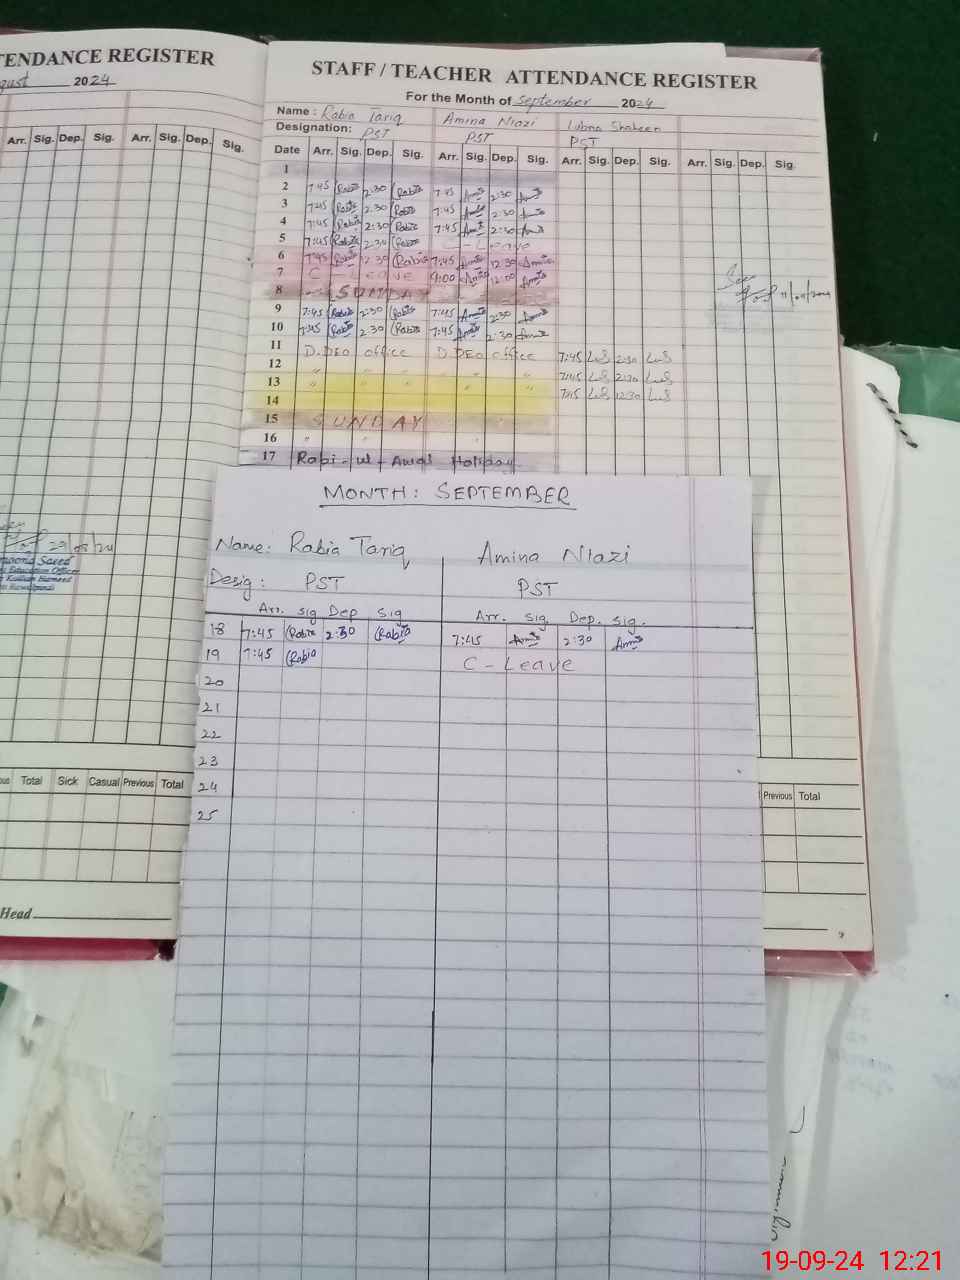 TENDANCE REGISTER
gust 2024
Arr. Sig. Dep. Sig. Arr. Sig. Dep. Sig.
STAFF / TEACHER ATTENDANCE REGISTER
For the Month of September 2024
Name : Rabia Tariq Amina Niazi Lubna Shaheen
Designation: PST PST PST
Date Arr. Sig. Dep. Sig. Arr. Sig. Dep. Sig. Arr. Sig. Dep. Sig. Arr. Sig. Dep. Sig.
1
2 7:45 Rabia 2:30 Rabia 7:45 Amna 2:30 Amna
3 7:45 Rabia 2:30 Rabia 7:45 Amna 2:30 Amna
4 7:45 Rabia 2:30 Rabia 7:45 Amna 2:30 Amna
5 7:45 Rabia 2:30 Rabia C - Leave
6 7:45 Rabia 12:30 Rabia 7:45 Amna 12:30 Amna
7 C - Leave 9:00 Amna 12:00 Amna
8 SUNDAY
9 7:45 Rabia 2:30 Rabia 7:45 Amna 2:30 Amna
10 7:45 Rabia 2:30 Rabia 7:45 Amna 2:30 Amna
11 D.DEO office D.DEO office 7:45 LuS 2:30 LuS
12 " " " " " 7:45 LuS 2:30 LuS
13 " " " " 7:45 LuS 12:30 LuS
14
15 SUNDAY
16 " " "
17 Rabi-ul-Awal Holiday
MONTH: SEPTEMBER
Name: Rabia Tariq Amina Niazi
Desig: PST PST
Arr. sig Dep sig Arr. sig Dep. sig.
18 7:45 Rabia 2:30 Rabia 7:45 Amna 2:30 Amna
19 7:45 Rabia C - Leave
20
21
22
23
24
25
Total Sick Casual Previous Total
Previous Total
Head
19-09-24 12:21